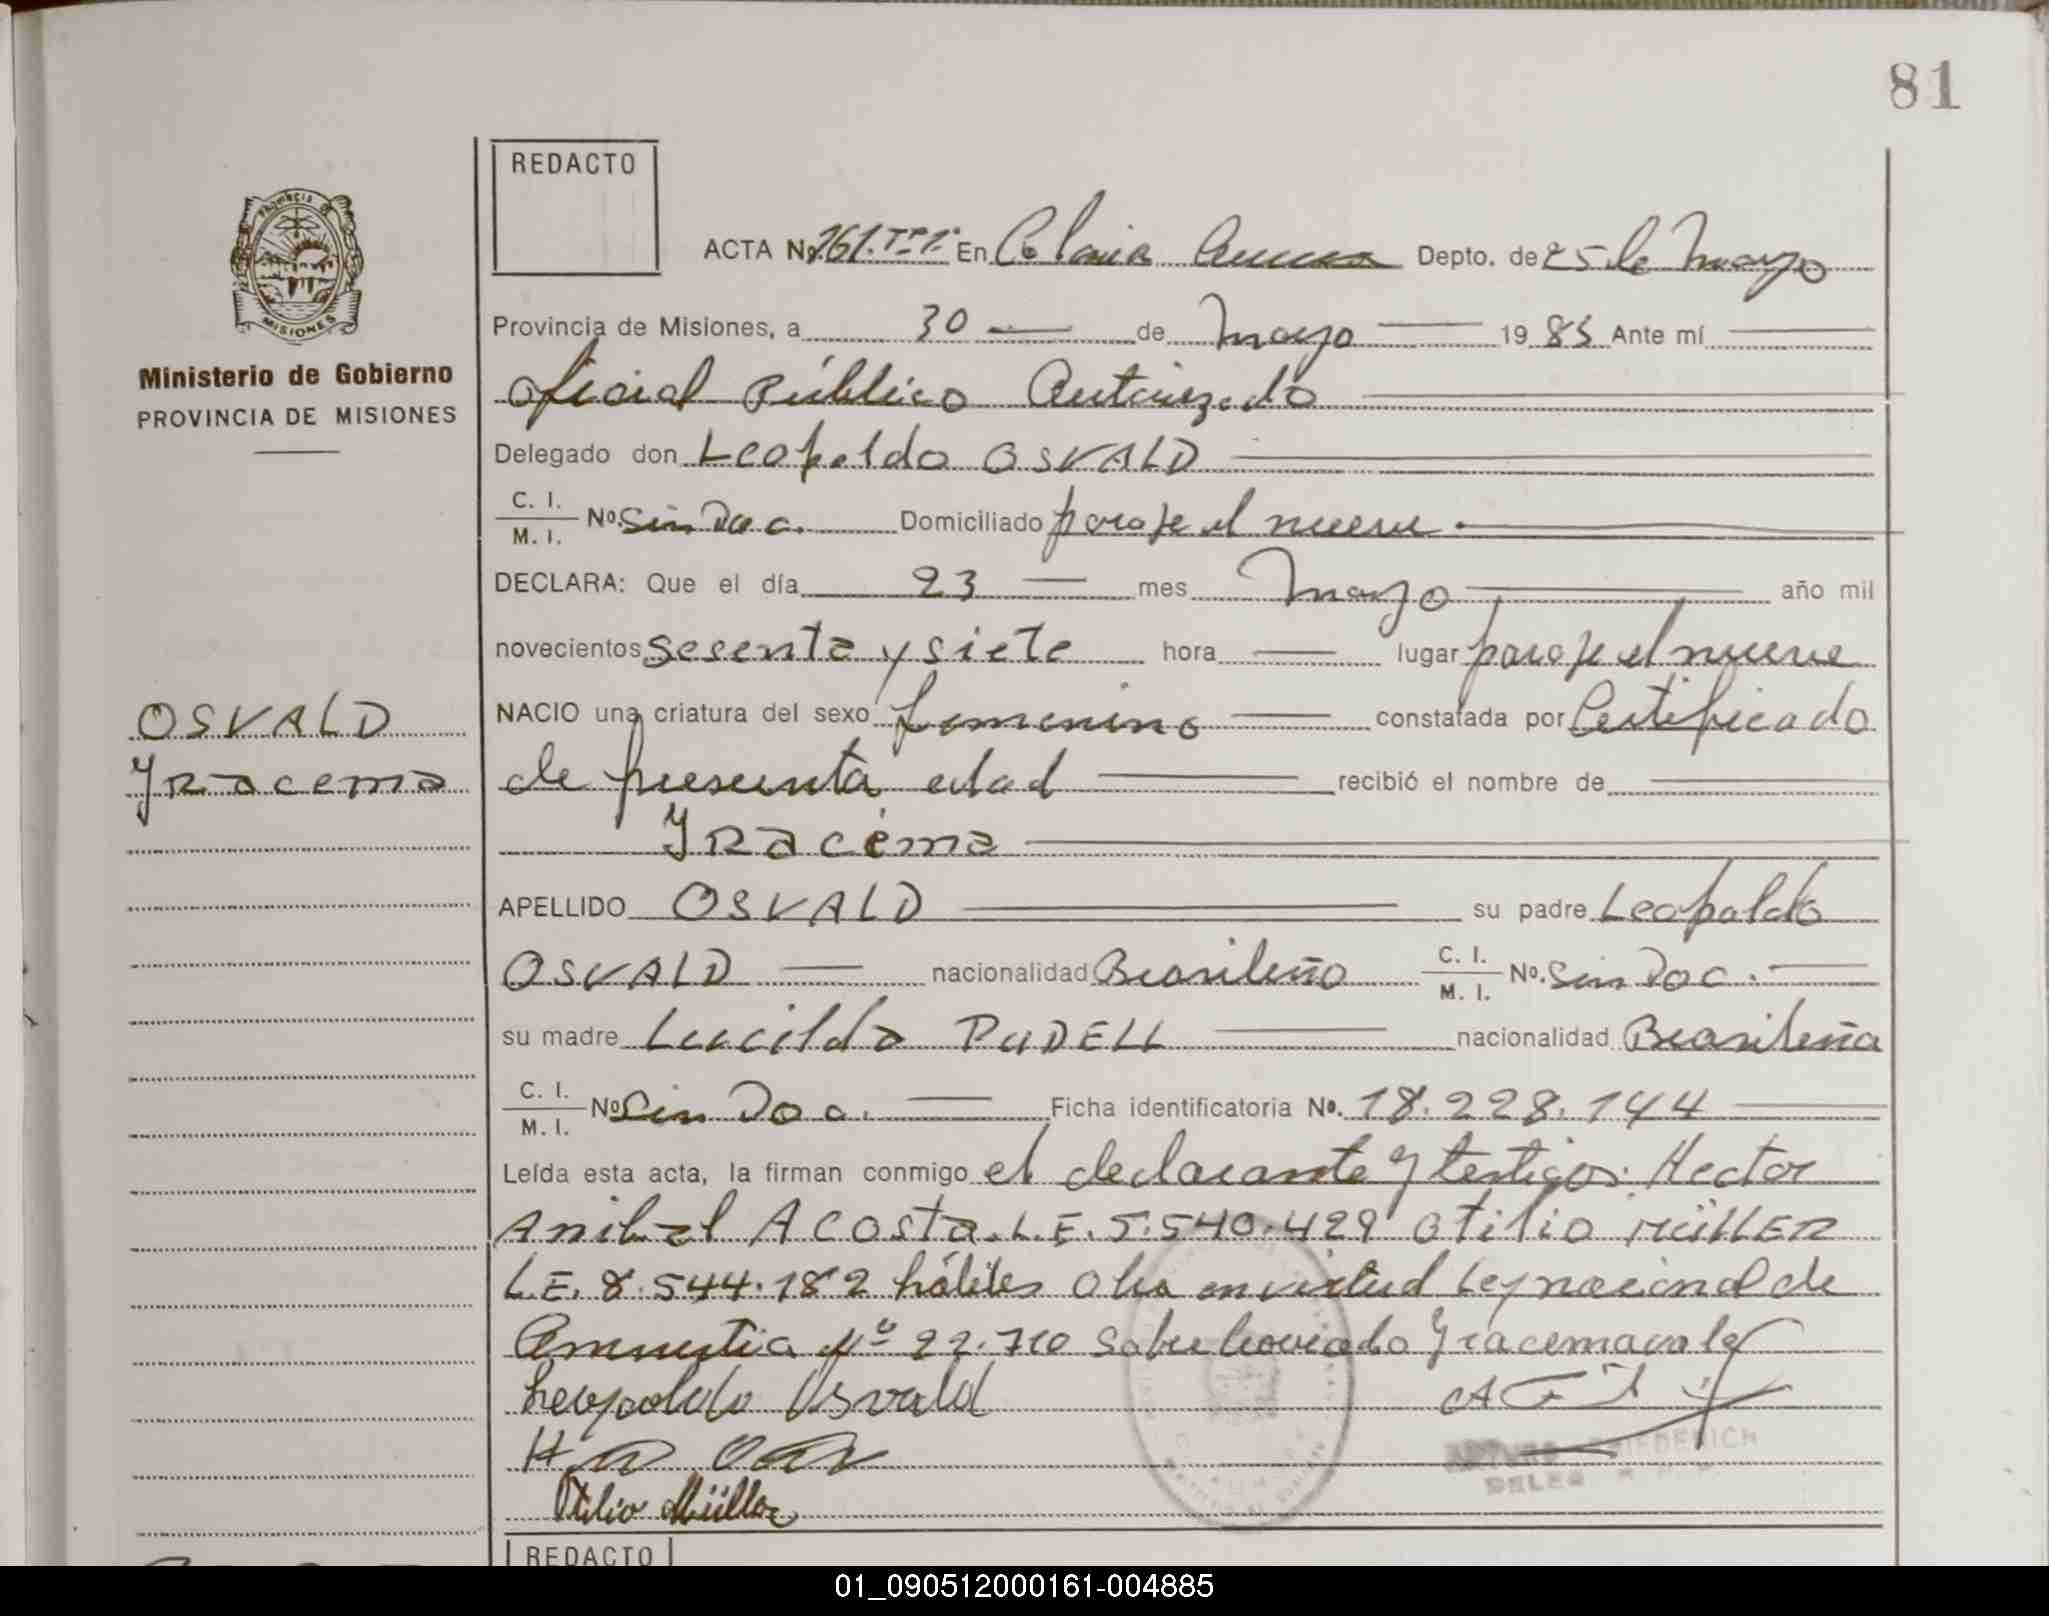 81
REDACTO
PROVINCIA DE
MISIONES
Ministerio de Gobierno
PROVINCIA DE MISIONES
ACTA Nº 161. Tº 1º En Colonia Aurora Depto. de 25 de Mayo
Provincia de Misiones, a 30 — de Mayo — 1985 Ante mí —
Oficial Público Autorizado
Delegado don Leopoldo OSVALD
C. I.
M. I. Nº. Sin Doc. Domiciliado paraje el nueve.
DECLARA: Que el día 23 — mes Mayo — año mil
novecientos sesenta y siete hora — lugar paraje el nueve
OSVALD
Yracema
NACIO una criatura del sexo femenino — constatada por Certificado
de presunta edad — recibió el nombre de —
Yracema
APELLIDO OSVALD — su padre Leopoldo
OSVALD — nacionalidad Brasileño C. I.
M. I. Nº. Sin Doc. —
su madre Lucilda PUDELL — nacionalidad Brasileña
C. I.
M. I. Nº Sin Doc. — Ficha identificatoria Nº. 18.228.144
Leída esta acta, la firman conmigo el declarante y testigos: Hector
Anibal Acosta. L.E. 5.540.429 Otilio MÜLLER
L.E. 8.544.182 hábiles en virtud Ley nacional de
Amnistia Nº 22.710 Sobre borrado Yracema vale
Leopoldo Osvald
Otilio Müller
ARTURO FRIEDERICH
REDACTO
01_090512000161-004885